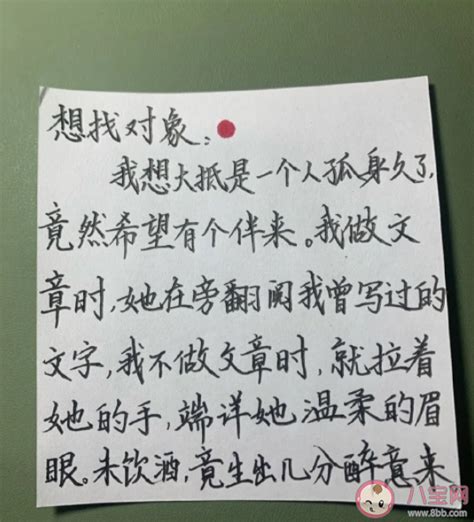 想找对象:
我想大抵是一个人孤身久了,
竟然希望有个伴来。我做文
章时,她在旁翻阅我曾写过的
文字,我不做文章时,就拉着
她的手,端详她温柔的眉
眼。未饮酒,竟生出几分醉意来
八宝网
www.8bb.com